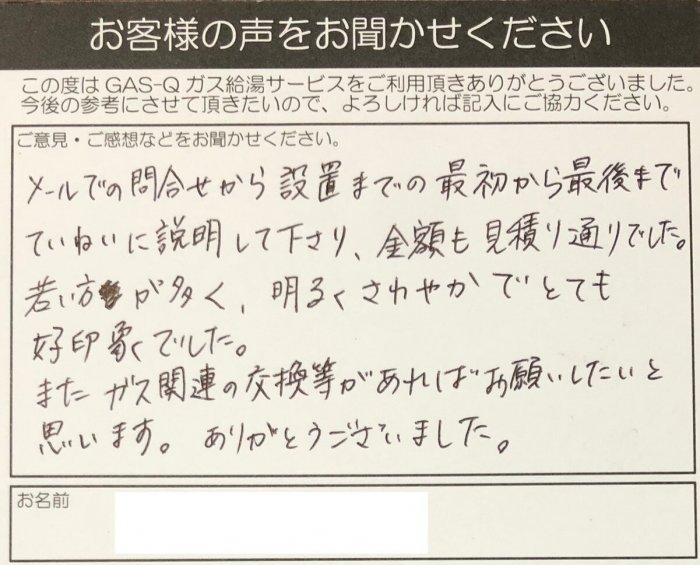 お客様の声をお聞かせください
この度は GAS-Q ガス給湯サービスをご利用頂きありがとうございました。
今後の参考にさせて頂きたいので、よろしければ記入にご協力ください。
ご意見・ご感想などをお聞かせください。
メールでの問合せから設置までの最初から最後まで
ていねいに説明して下さり、金額も見積り通りでした。
若い方が多く、明るくさわやかでとても
好印象でした。
またガス関連の交換等があればお願いしたいと
思います。ありがとうございました。
お名前